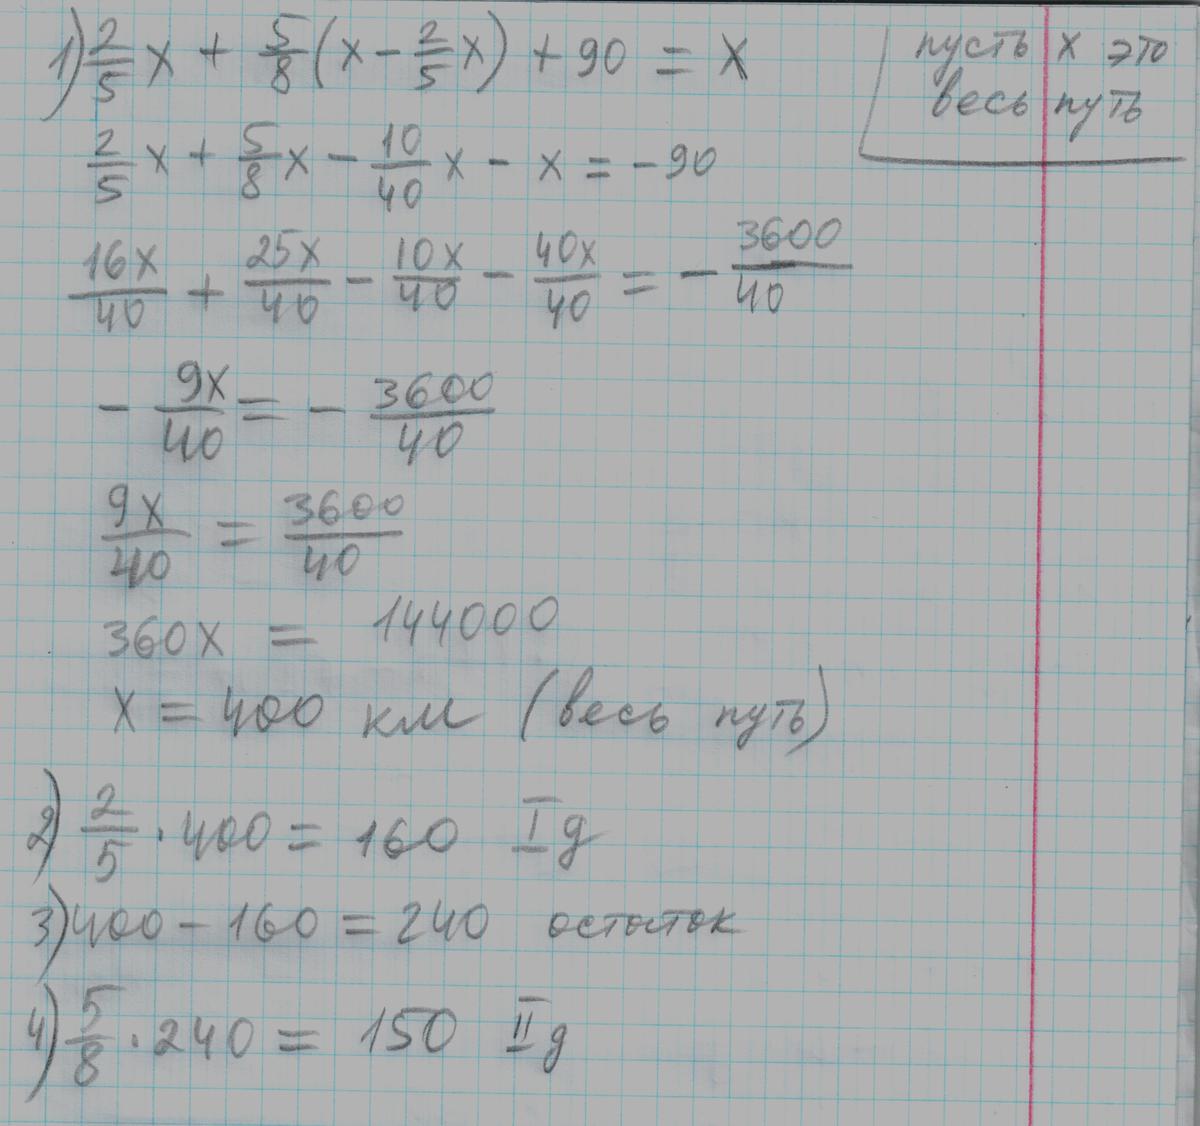 пусть x это
весь путь
1) 2/5 x + 5/8 (x - 2/5 x) + 90 = x
2/5 x + 5/8 x - 10/40 x - x = -90
16x/40 + 25x/40 - 10x/40 - 40x/40 = - 3600/40
- 9x/40 = - 3600/40
9x/40 = 3600/40
360x = 144000
x = 400 км (весь путь)
2) 2/5 · 400 = 160 I д
3) 400 - 160 = 240 остаток
4) 5/8 · 240 = 150 II д